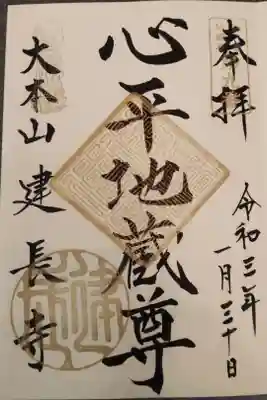 奉拝
令和三年
一月三十日
心平地蔵尊
大本山建長寺